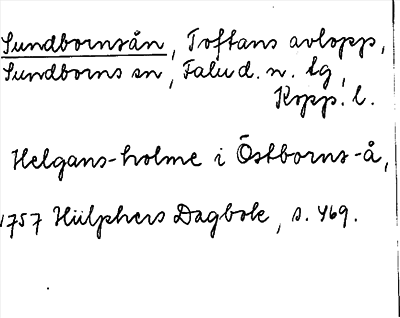 Sundbornsån, Toftans avlopp,
Sundborns sn, Falu d. n. lg,
Kopp. l.
Helgans-holme i Östborns-å,
1757 Hülphers Dagbok, s. 469.